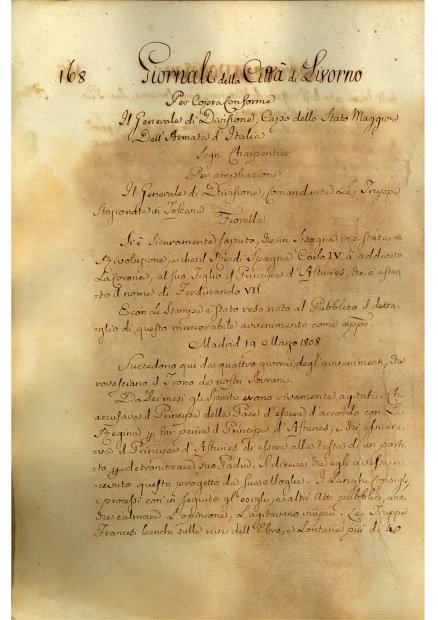 168 Giornale della Città di Livorno
Per Copia Conforme
Il Generale di Divisione, Capo dello Stato Maggiore
Dell'Armata d'Italia
Segn. Charpentier
Per ampliazione
Il Generale di Divisione, Comandante Le Truppe
Stazionate in Toscana
Fiorella
Si è sicuramente saputo, che in Ispagna vi è stata un
Rivoluzione, e che il Rè di Spagna Carlo IV. à addicato
La Corona, al suo Figlio il Principe d'Asturies, che à assun
to il nome di Ferdinando VII.
E con le Stampe è stato reso noto al Pubblico il detta
glio di questo memorabile avvenimento come app.o
Madrid 19 Marzo 1808
Succedono qui da quattro giorni degl'avvenimenti, che
rovesciano il Trono dei nostri Sovrani.
Da Sei mesi gli Spiriti erono vivamente agitati.
accusava il Principe della Pace d'essere d'accordo con La
Regina p far perire il Principe d'Asturies, e di assicura
va il Principe d'Asturies di essere alla testa di un parti
to p detronizzare suo Padre. Si diceva che egli avesse ri
cevuto questo progetto da sua Moglie. I Lunghi Consigli
e processi con in seguito gl'esigli, e altri Atti pubblici, anzi
che calmare l'opinione, L'agitavano viepiù. Le Truppe
Francesi benche sulle rive dell'Ebro, e Lontane più di 40